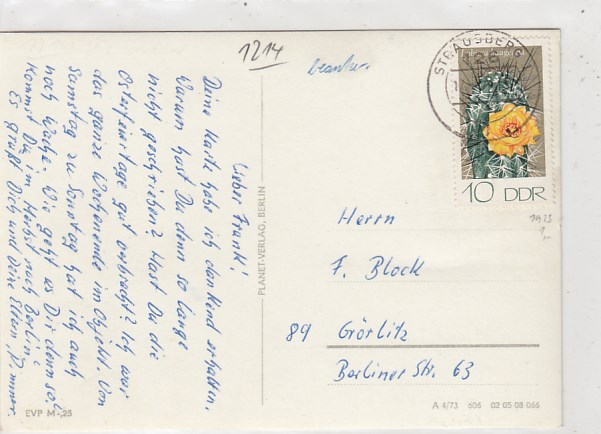 1214
beantw.
Lieber Frank!
Deine Karte habe ich dankend erhalten.
Warum hast Du denn so lange
nicht geschrieben? Hast Du die
Osterfeiertage gut verbracht? Ich war
das ganze Wochenende im Objekt. Von
Samstag zu Sonntag hat ich auch
noch Wache. Wie geht es Dir denn so?
Kommst Du im Herbst nach Berlin?
Es grüßt Dich und Deine Eltern,
EVP M -,25
PLANET-VERLAG, BERLIN
STRAUSBERG
10 DDR
1973
1,-
Herrn
F. Block
89 Görlitz
Berliner Str. 63
A 4/73 606 02 05 08 066